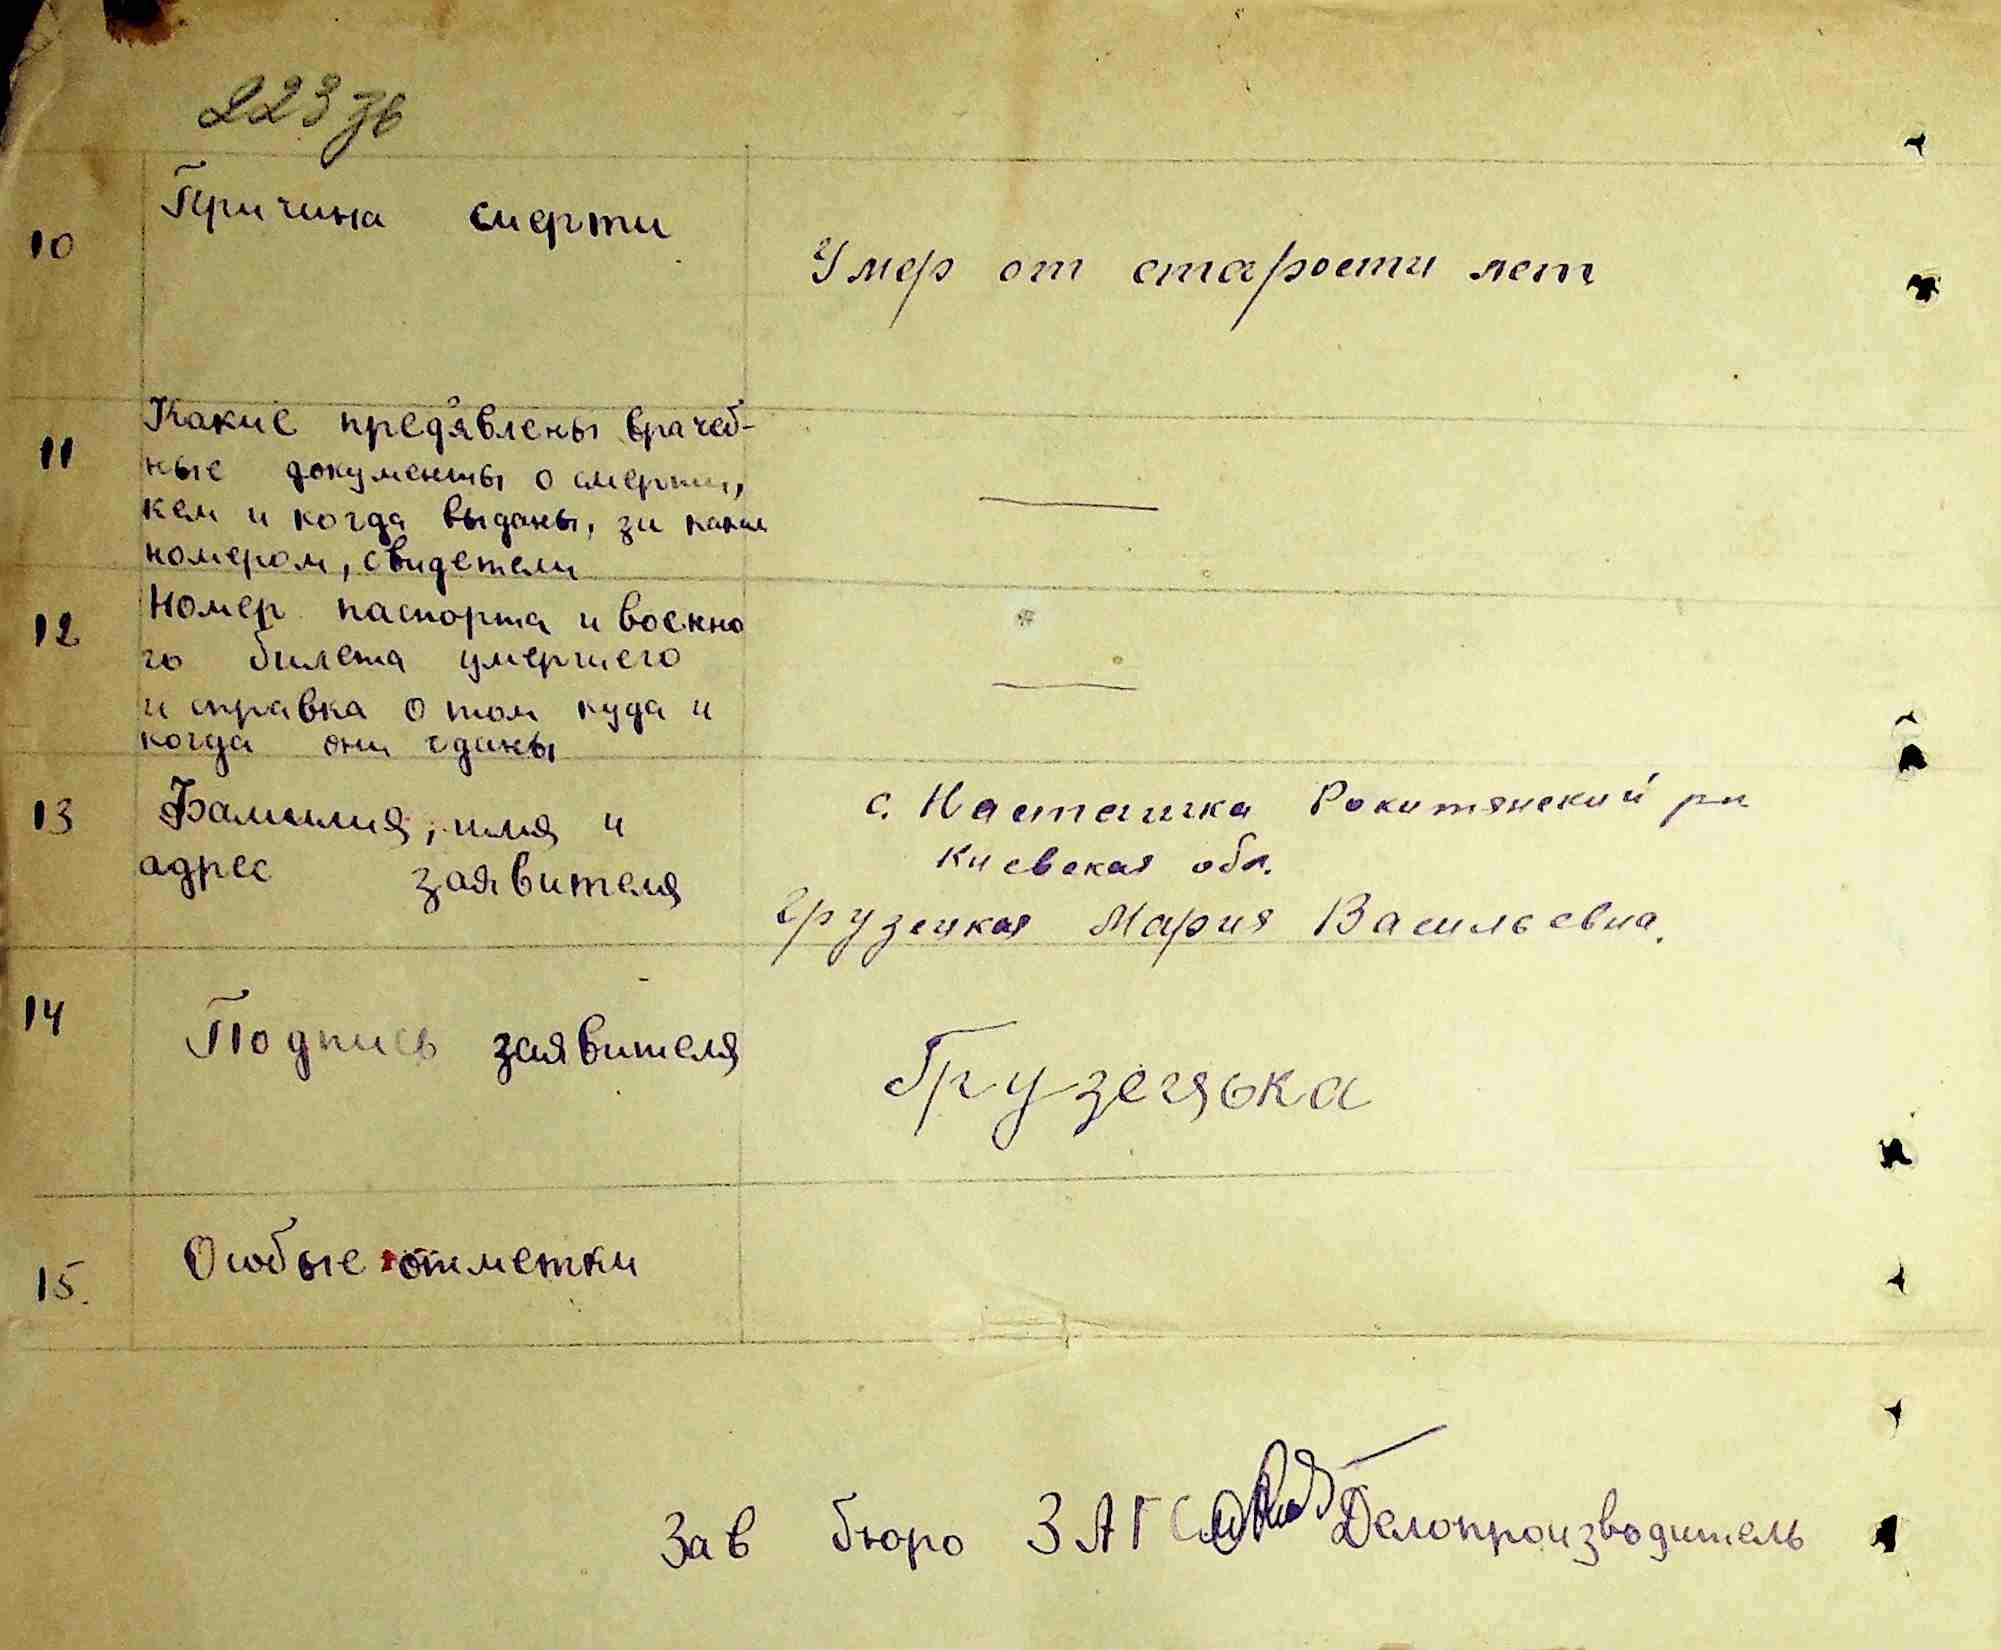 223 зв
10 Причина смерти
Умер от старости лет
11 Какие пред'явлены врачеб-
ные документы о смерти,
кем и когда выданы, за каким
номером, свидетели
—
12 Номер паспорта и военно
го билета умершего
и справка о том куда и
когда они сданы
—
13 Фамилия, имя и
адрес заявителя
с. Насташка Рокитянский рн
Киевская обл.
Грузецкая Мария Васильевна.
14 Подпись заявителя
Грузецька
15. Особые отметки
Зав бюро ЗАГС Делопроизводитель